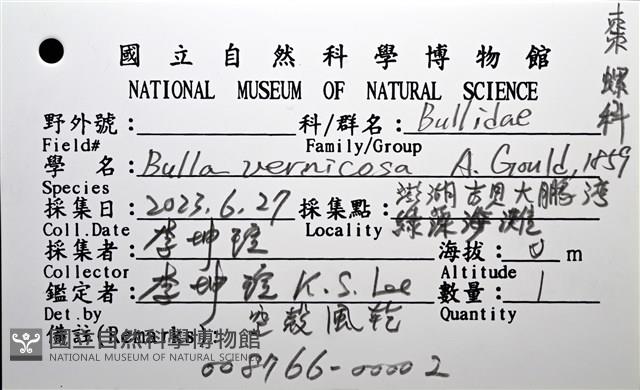 國立自然科學博物館
NATIONAL MUSEUM OF NATURAL SCIENCE
棗螺科
野外號: 科/群名: Bullidae
Field# Family/Group
學 名: Bulla vernicosa A. Gould, 1859
Species
採集日: 2023.6.27 採集點: 澎湖吉貝大鵬灣
綠藻海灘
Coll.Date Locality
採集者: 李坤瑄 海拔: 0 m
Collector Altitude
鑑定者: 李坤瑄 K.S. Lee 數量: 1
Det.by Quantity
備註(Remarks): 空殼風乾
國立自然科學博物館
NATIONAL MUSEUM OF NATURAL SCIENCE
008766-00002